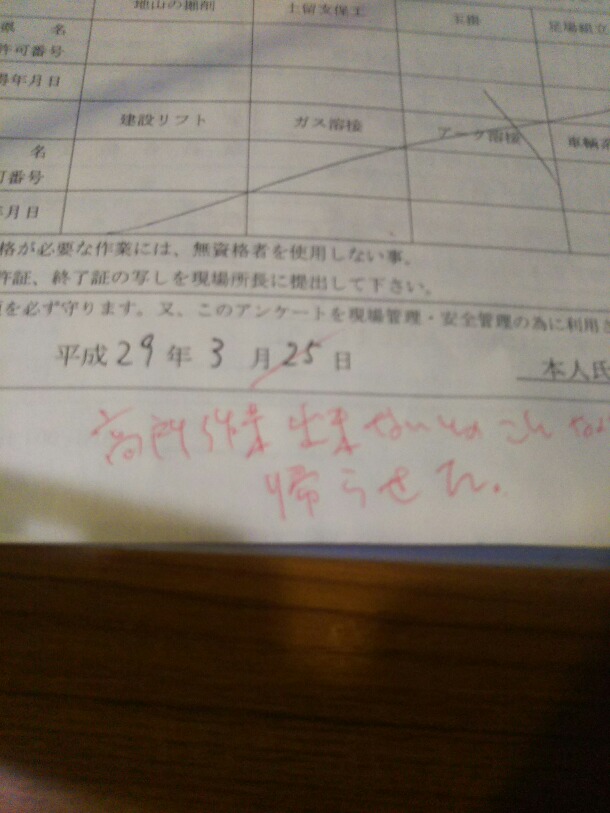 地山の掘削 土留支保工 玉掛 足場組立
名
許可番号
年月日
建設リフト ガス溶接 アーク溶接 車輌
名
可番号
年月日
格が必要な作業には、無資格者を使用しない事。
許証、終了証の写しを現場所長に提出して下さい。
を必ず守ります。又、このアンケートを現場管理・安全管理の為に利用さ
平成29年3月25日 本人氏
高所作業 出来ないとの こと
帰らせた。